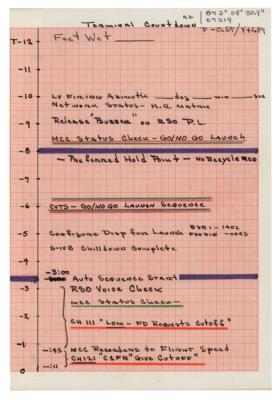 Terminal Countdown
AZ
072° 08' 30.9"
07219
P -0.57/Y+.689
T-12 Feet Wet ______
-10 LV Firing Azimuth ___deg ___min ___sec
Network Status - M.R. Matrix
-9 Release "Buzzer" on RSO P.L.
MCC Status Check - GO/NO GO Launch
-8
- Preferred Hold Point - No Recycle Req
-7
-6 CVTS - GO/NO GO Launch Sequence
-5 Configure Disp for Launch
BSE1 - 1402
-0043
S-IVB Chilldown Complete
-4
-3:00 Auto Sequence Start
-3 RSO Voice Check
MCC Status Check
-2 CH 111 "LOM - FD Requests Cutoff"
-1
-:45 MCC Recorders to Flight Speed
-:11 CH 121 "CSFR" Give Cutoff"
0